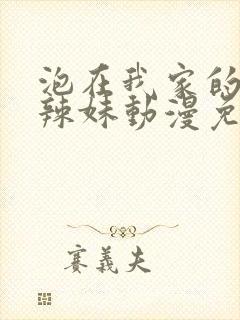 泡在我家的
辣妹動漫免
賽義夫